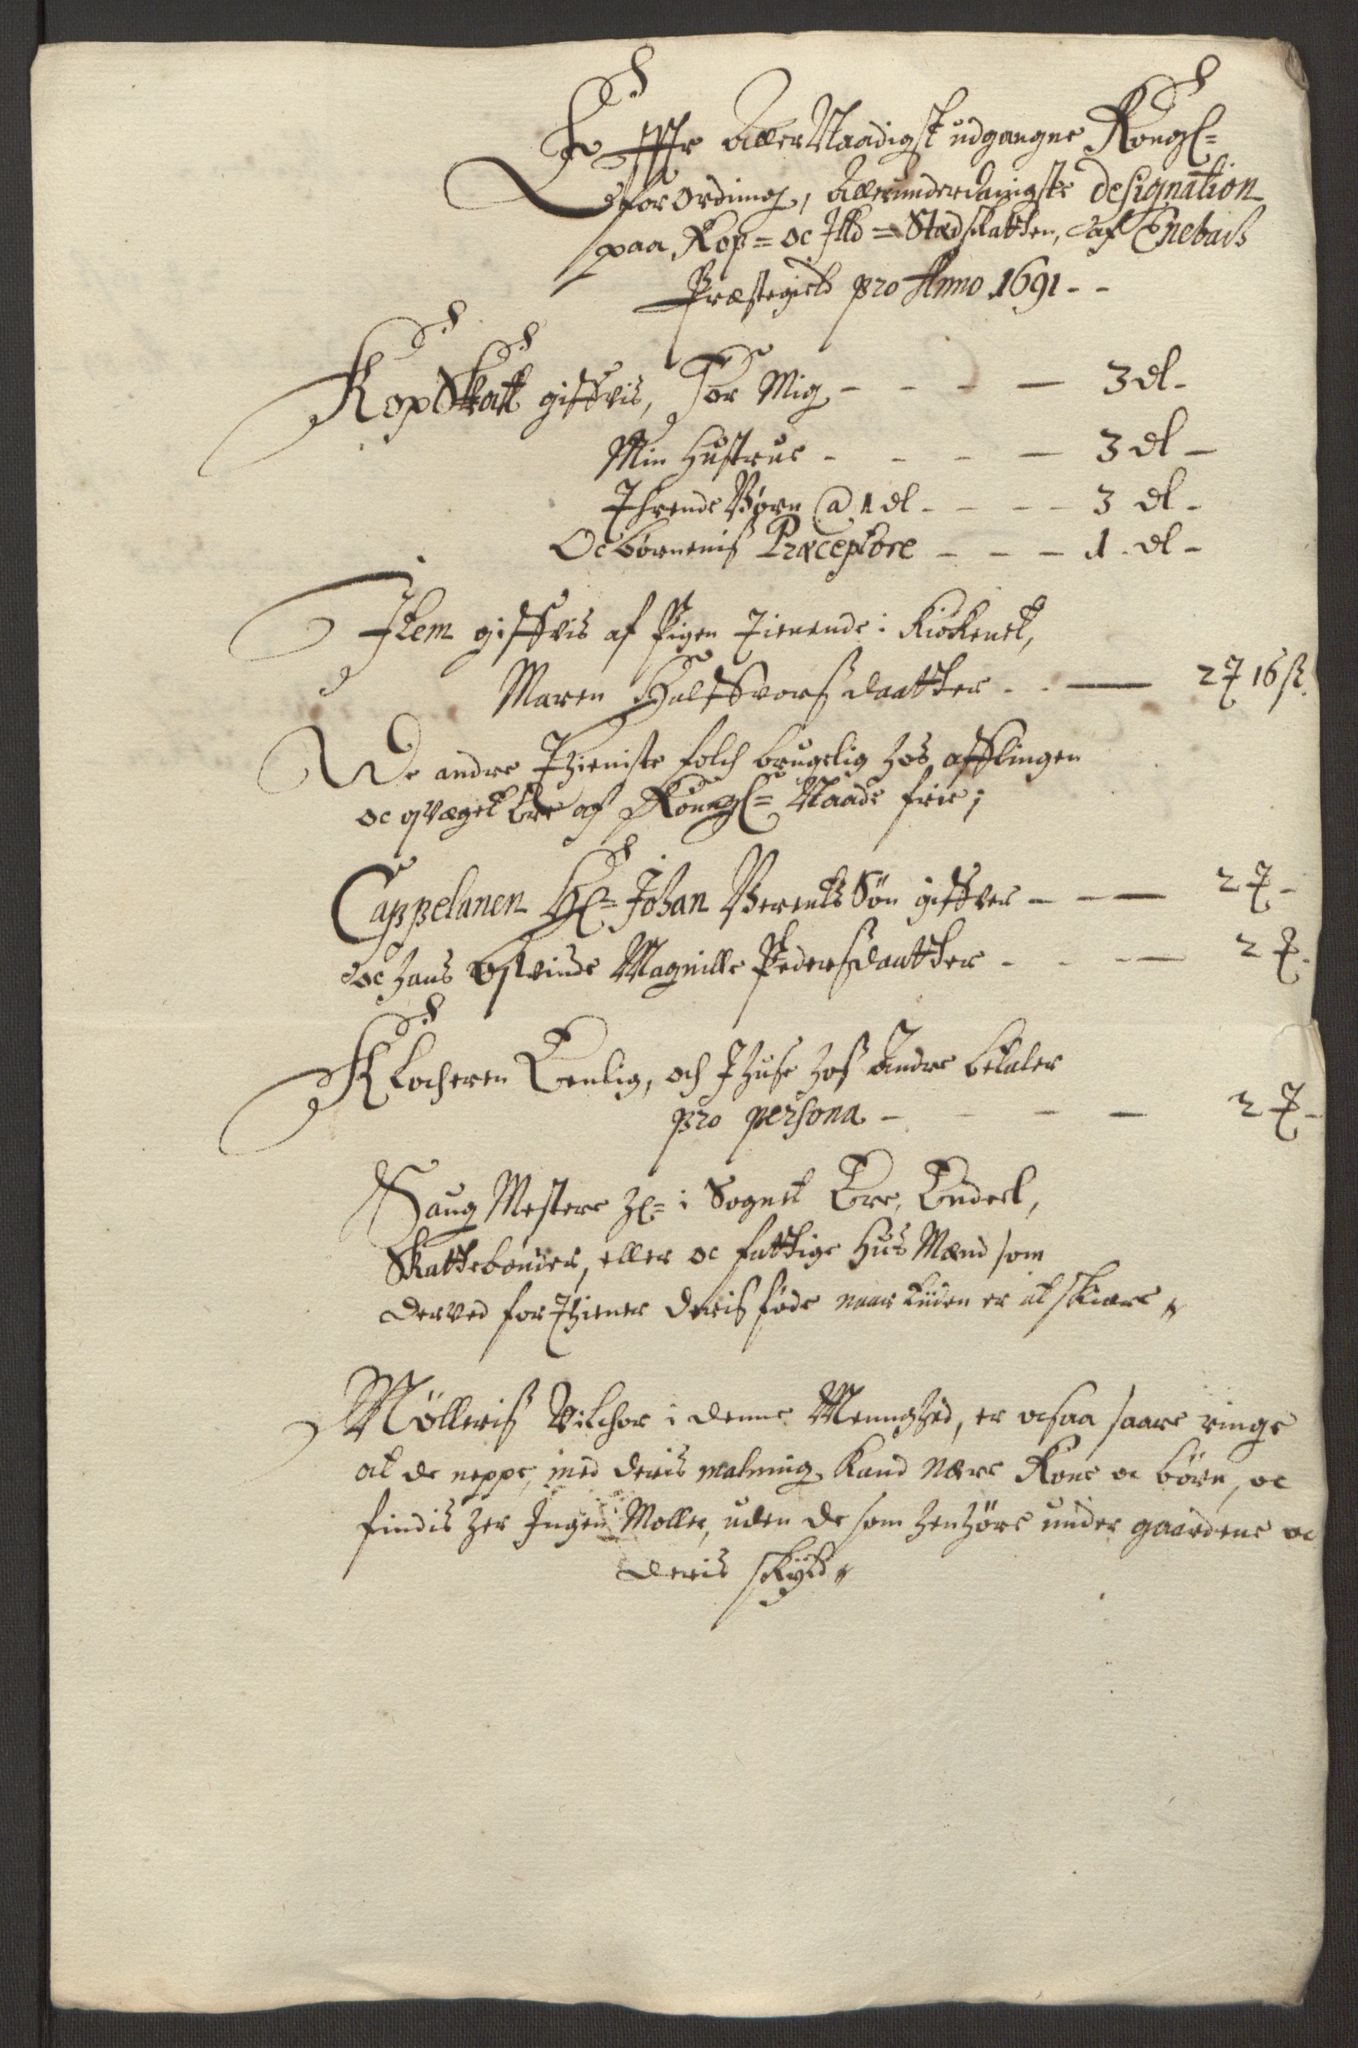 Effter Aller Naadigst udgangne Kongl=
forordning, Allerunderdanigste designation
paa Kop= oc Illd=Stædskatten, af Enebach
Præstegield pro Anno 1691 - -
KopSkatt giffvis, For Mig - - - - 3 dl -
Min Hustrue - - - - 3 dl -
Thrende Børn @ 1 dl - - - - 3 dl -
Oc børneniß Præceptore - - - 1 dl -
Item giffvis af Pigen tienende i Kiøkenet,
Maren Halffvorßdaatter - - - 2 16 ß.
De andre Thieniste folch brugelig hos afflingen
oc qvæget ere af Kongl= Naade frie;
Cappelanen Hr= Johan Berents Søn giffver - - - 2 -
oc hans Qvinde Magnille Pedersdaatter - - - 2 -
Klocheren Eenlig, och I huse hos Andre betaler
pro persona - - - - 2 -
Saug Mestere her i Sognet Ere, Endeel,
Skattebønder, eller oc fattige Hus Mænd som
derved forthiener deris føde naar tiiden er at skiære
Mølleriß Vilchor i denne Menighed, er ocsaa saare ringe
at de neppe, med deris malning kand Nære Kone oc børn, oc
findis her Ingen Møller, uden de som henhøre under gaardene oc
deris skyld